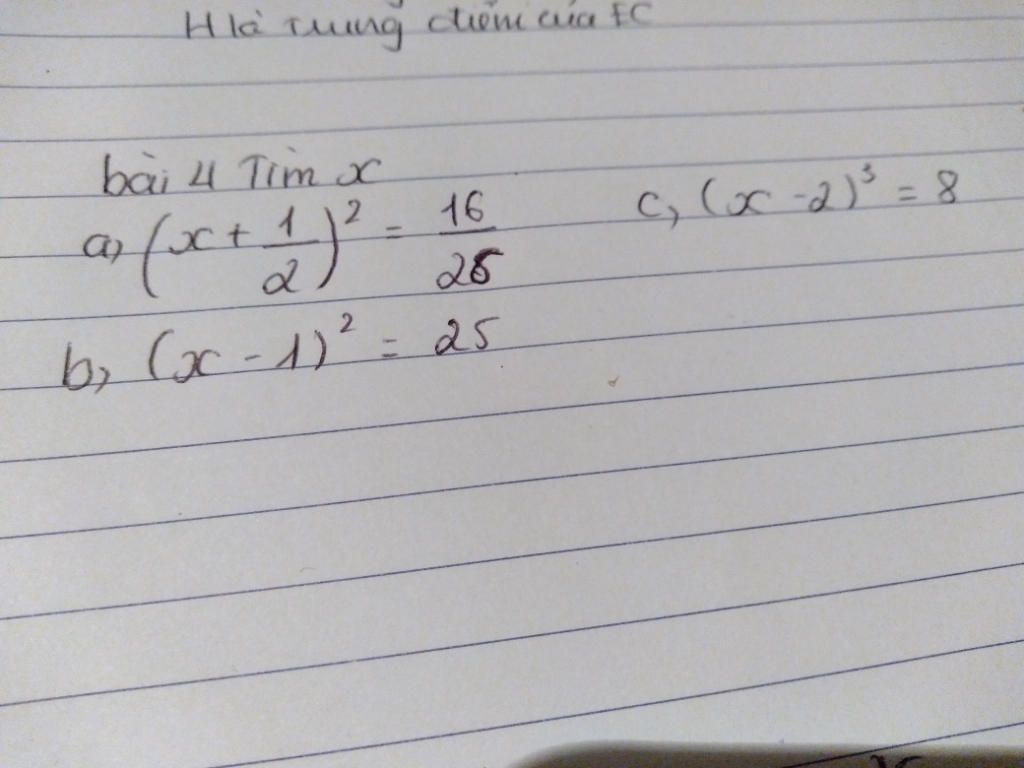 H là Trung điểm của EC
bài 4 Tìm x
a, (x + 1/2)² = 16/25
c, (x - 2)³ = 8
b, (x - 1)² = 25